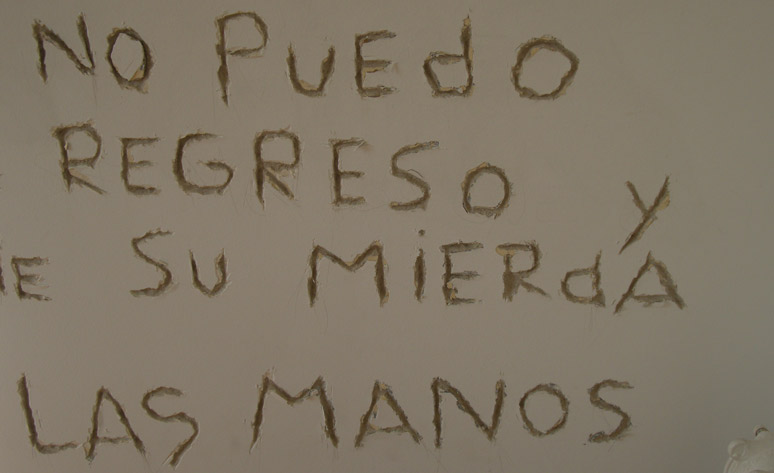 NO PUEdO
REGRESO y
E SU MiERdA
LAS MANOS